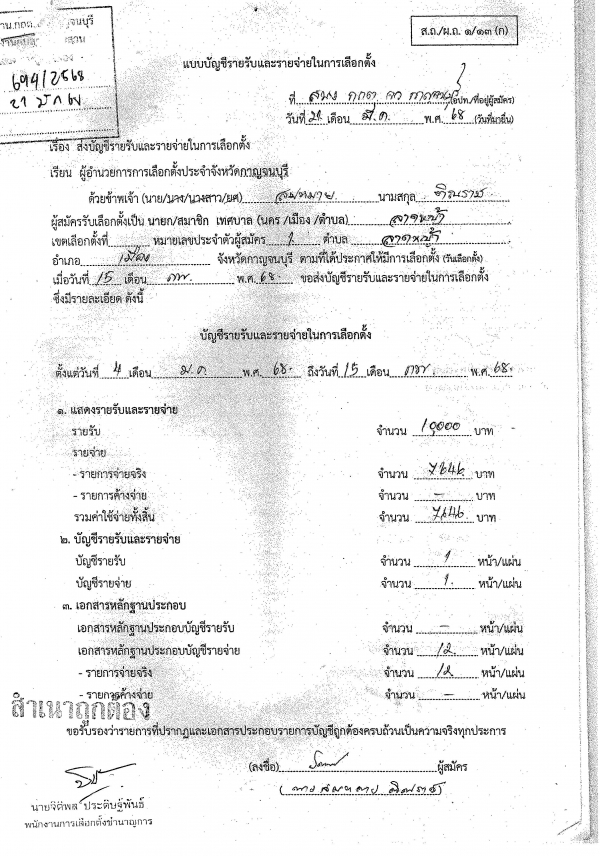 ส.ถ./ผ.ถ. ๑/๑๓ (ก)
694/2568
แบบบัญชีรายรับและรายจ่ายในการเลือกตั้ง
ที่ (อปท./ที่อยู่ผู้สมัคร)
วันที่ เดือน มี.ค. พ.ศ. 68 (วันที่มายื่น)
เรื่อง ส่งบัญชีรายรับและรายจ่ายในการเลือกตั้ง
เรียน ผู้อำนวยการการเลือกตั้งประจำจังหวัดกาญจนบุรี
ด้วยข้าพเจ้า (นาย/นาง/นางสาว/ยศ) สมหมาย นามสกุล
ผู้สมัครรับเลือกตั้งเป็น นายก/สมาชิก เทศบาล (นคร /เมือง /ตำบล) ลาดหญ้า
เขตเลือกตั้งที่ หมายเลขประจำตัวผู้สมัคร 1 ตำบล ลาดหญ้า
อำเภอ เมือง จังหวัดกาญจนบุรี ตามที่ได้ประกาศให้มีการเลือกตั้ง (วันเลือกตั้ง)
เมื่อวันที่ 15 เดือน กพ. พ.ศ. 68. ขอส่งบัญชีรายรับและรายจ่ายในการเลือกตั้ง
ซึ่งมีรายละเอียด ดังนี้
บัญชีรายรับและรายจ่ายในการเลือกตั้ง
ตั้งแต่วันที่ 4 เดือน ม.ค. พ.ศ. 68. ถึงวันที่ 15 เดือน กพ. พ.ศ. 68.
๑. แสดงรายรับและรายจ่าย
รายรับ จำนวน 10000 บาท
รายจ่าย
- รายการจ่ายจริง จำนวน 7646 บาท
- รายการค้างจ่าย จำนวน – บาท
รวมค่าใช้จ่ายทั้งสิ้น จำนวน 7646 บาท
๒. บัญชีรายรับและรายจ่าย
บัญชีรายรับ จำนวน 1 หน้า/แผ่น
บัญชีรายจ่าย จำนวน 1. หน้า/แผ่น
๓. เอกสารหลักฐานประกอบ
เอกสารหลักฐานประกอบบัญชีรายรับ จำนวน – หน้า/แผ่น
เอกสารหลักฐานประกอบบัญชีรายจ่าย จำนวน 12. หน้า/แผ่น
- รายการจ่ายจริง จำนวน 12 หน้า/แผ่น
- รายการค้างจ่าย จำนวน – หน้า/แผ่น
สำเนาถูกต้อง
ขอรับรองว่ารายการที่ปรากฏและเอกสารประกอบรายการบัญชีถูกต้องครบถ้วนเป็นความจริงทุกประการ
(ลงชื่อ) ผู้สมัคร
นายจิติพล ประดิษฐ์พันธ์
พนักงานการเลือกตั้งชำนาญการ